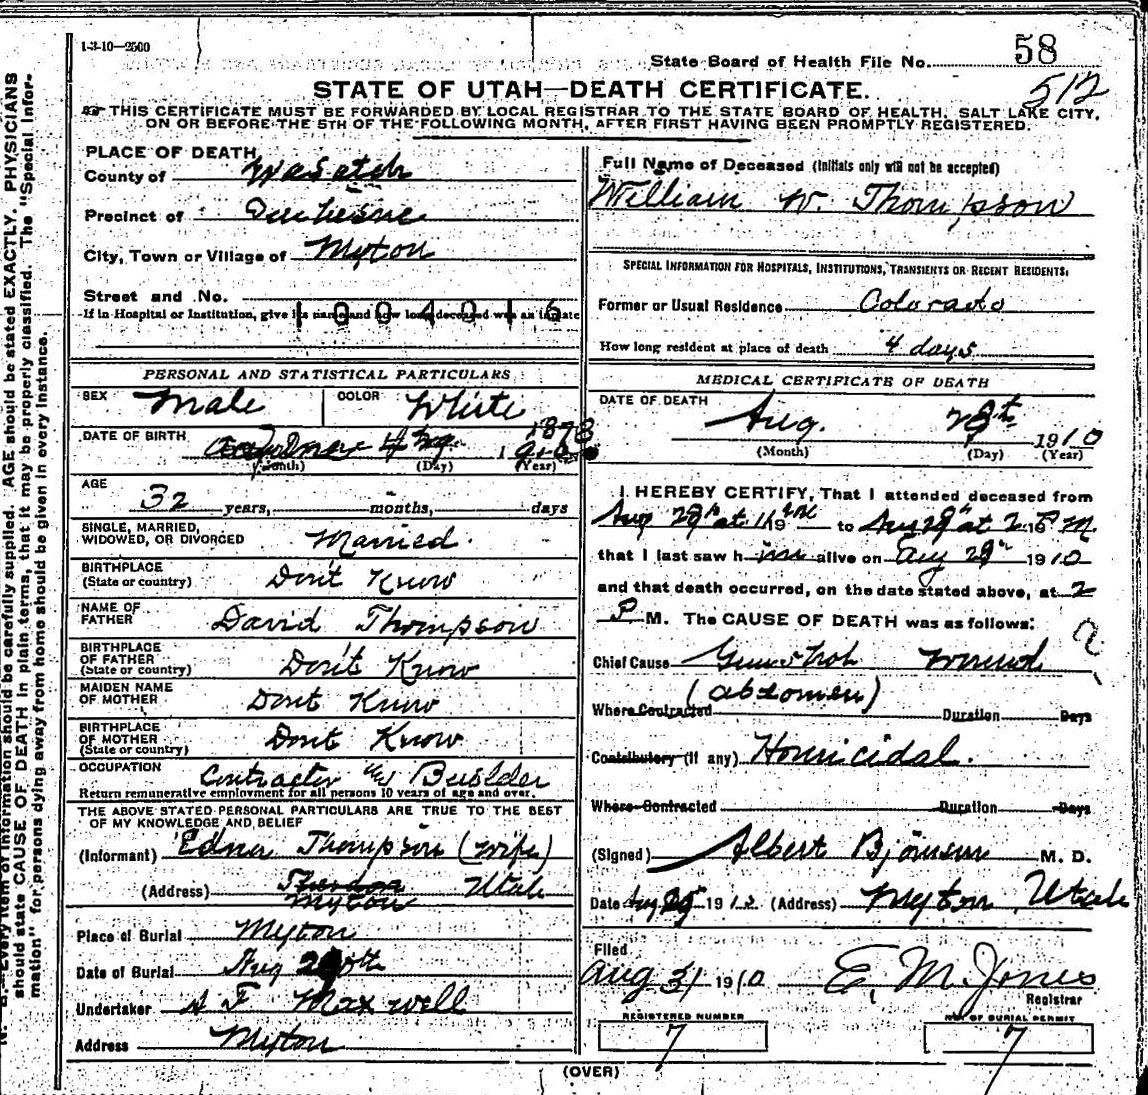 1-3-10—2500
State Board of Health File No. 58
512
STATE OF UTAH—DEATH CERTIFICATE.
THIS CERTIFICATE MUST BE FORWARDED BY LOCAL REGISTRAR TO THE STATE BOARD OF HEALTH, SALT LAKE CITY,
ON OR BEFORE THE 5TH OF THE FOLLOWING MONTH, AFTER FIRST HAVING BEEN PROMPTLY REGISTERED.
PLACE OF DEATH
County of Wasatch
Precinct of Duchesne
City, Town or Village of Myton
Street and No.
1004016
If in Hospital or Institution, give its name and how long deceased was an inmate
PERSONAL AND STATISTICAL PARTICULARS
SEX Male COLOR White
DATE OF BIRTH 1878
(Month) (Day) (Year)
AGE
32 years, months, days
SINGLE, MARRIED,
WIDOWED, OR DIVORCED Married.
BIRTHPLACE
(State or country) Don't Know
NAME OF
FATHER David Thompson
BIRTHPLACE
OF FATHER
(State or country) Don't Know
MAIDEN NAME
OF MOTHER Dont Know
BIRTHPLACE
OF MOTHER
(State or country) Dont Know
OCCUPATION Contractor & Builder
Return remunerative employment for all persons 10 years of age and over.
THE ABOVE STATED PERSONAL PARTICULARS ARE TRUE TO THE BEST
OF MY KNOWLEDGE AND BELIEF
(Informant) Edna Thompson (wife)
(Address) Myton Utah
Place of Burial Myton
Date of Burial Aug
Undertaker Maxwell
Address Myton
Full Name of Deceased (Initials only will not be accepted)
William W. Thompson
SPECIAL INFORMATION FOR HOSPITALS, INSTITUTIONS, TRANSIENTS OR RECENT RESIDENTS.
Former or Usual Residence Colorado
How long resident at place of death 4 days
MEDICAL CERTIFICATE OF DEATH
DATE OF DEATH
Aug. 28th 1910
(Month) (Day) (Year)
I HEREBY CERTIFY, That I attended deceased from
Aug 28th at to Aug 28th at 2 P.M.
that I last saw him alive on Aug 28th 1910
and that death occurred, on the date stated above, at 2
P. M. The CAUSE OF DEATH was as follows:
Chief Cause Gunshot wound
(abdomen)
Where Contracted Duration Days
Contributory (if any) Homicidal.
Where Contracted Duration Days
(Signed) Albert M. D.
Date Aug 1910 (Address) Myton Utah
Filed
Aug 31 1910 E. M. Jones
Registrar
REGISTERED NUMBER
7
NO. OF BURIAL PERMIT
7
(OVER)
N. B.—Every item of information should be carefully supplied. AGE should be stated EXACTLY. PHYSICIANS
should state CAUSE OF DEATH in plain terms, that it may be properly classified. The "Special Infor-
mation" for persons dying away from home should be given in every instance.